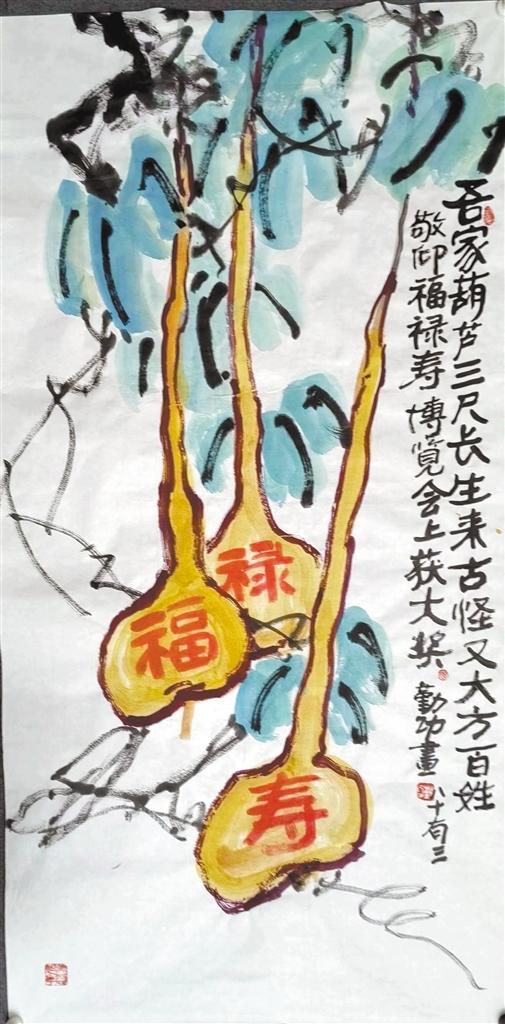 吾家葫芦三尺长生来古怪又大方百姓
敬仰福禄寿博览会上获大奖
勤功畫八十有三
禄
福
寿